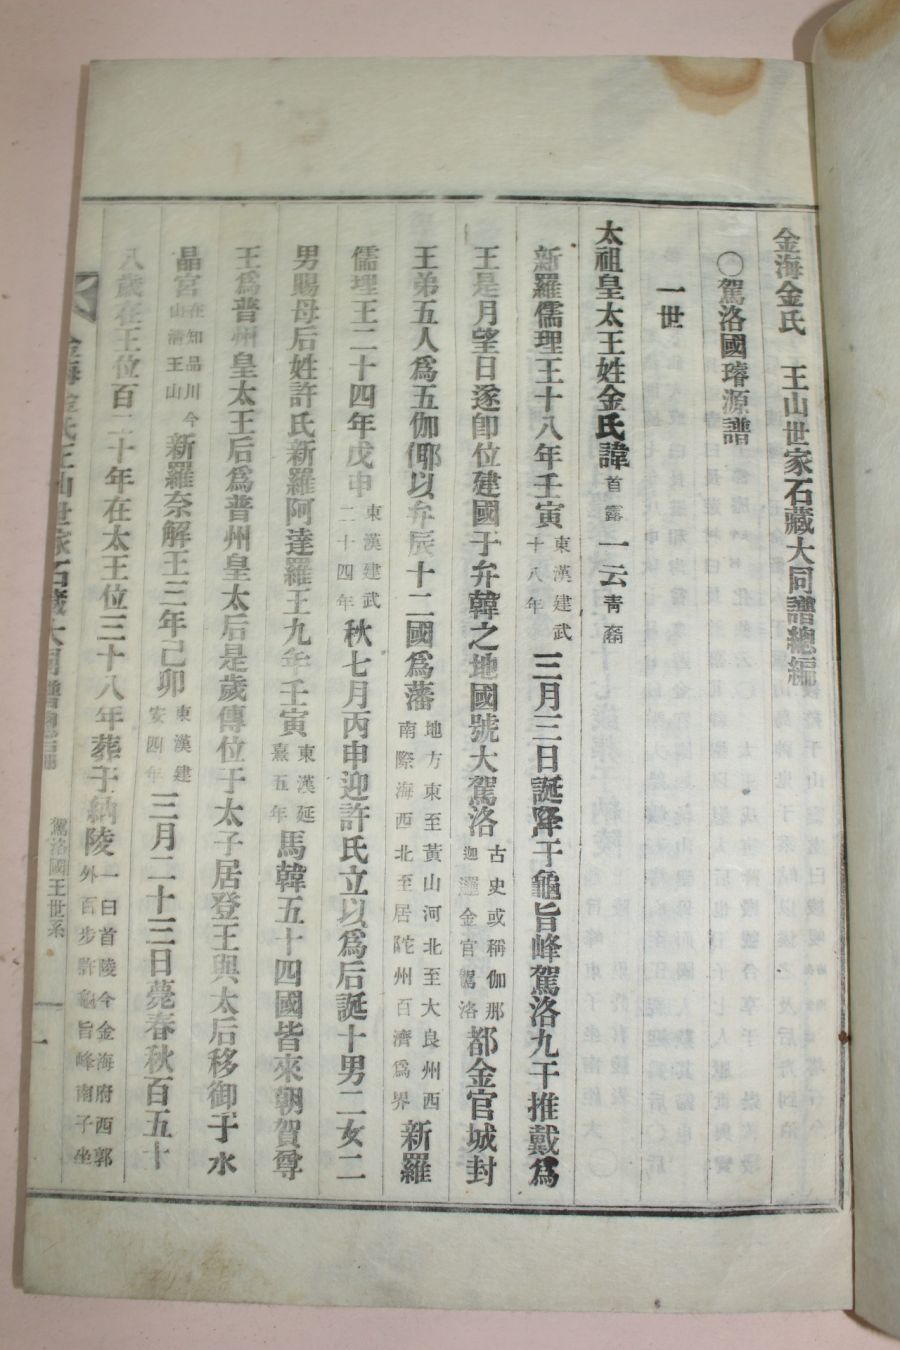 金海金氏 王山世家石藏大同譜總編
○駕洛國璿源譜
一世
太祖皇太王姓金氏諱首露一云青裔
新羅儒理王十八年壬寅東漢建武十八年三月三日誕降于龜旨峰駕洛九干推戴爲
王是月望日遂卽位建國于弁韓之地國號大駕洛古史或稱伽那迦邏金官駕洛都金官城封
王弟五人爲五伽倻以弁辰十二國爲藩地方東至黃山河北至大良州西南際海西北至居陀州百濟爲界新羅
儒理王二十四年戊申東漢建武二十四年秋七月丙申迎許氏立以爲后誕十男二女二
男賜母后姓許氏新羅阿達羅王九年壬寅東漢延熹五年馬韓五十四國皆來朝賀尊
王爲普州皇太王后爲普州皇太后是歲傳位于太子居登王與太后移御于水
晶宮在知品川今山淸王山新羅奈解王三年己卯東漢建安四年三月二十三日薨春秋百五十
八歲在王位百二十年在太王位三十八年葬于納陵一曰首陵今金海府西郭外百步許龜旨峰南子坐
金海金氏王山世家石藏大同譜總編 駕洛國王世系 一